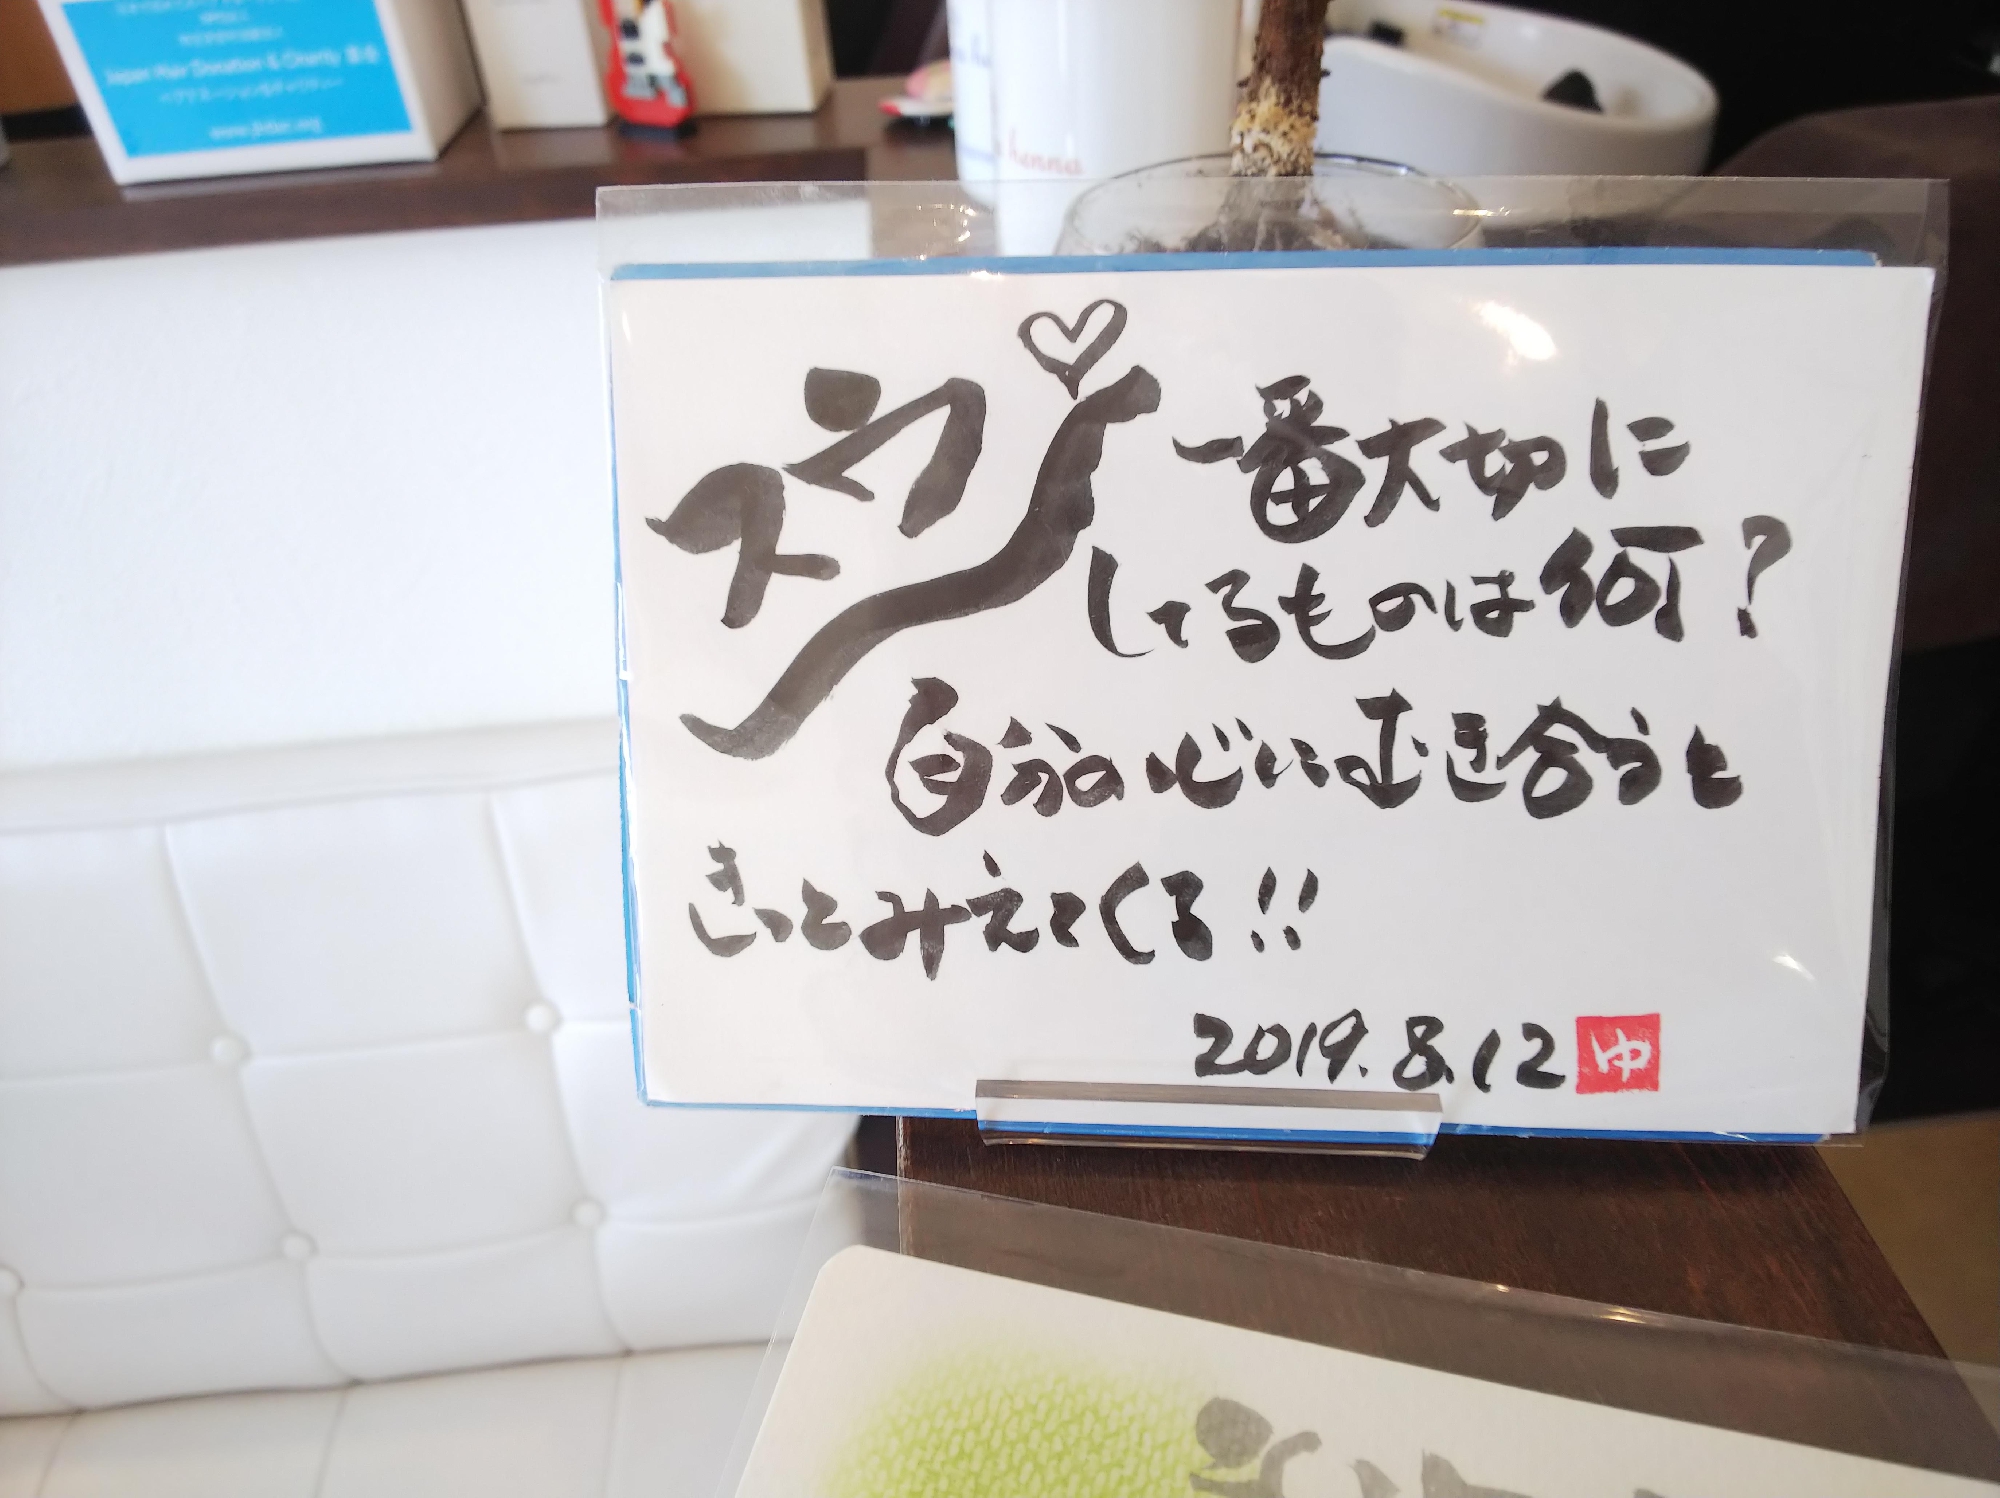 Japan Hair Donation & Charity
henna
一番大切に
してるものは何？
自分の心にむき合うと
きっとみえてくる!!
2019.8.12 ゆ